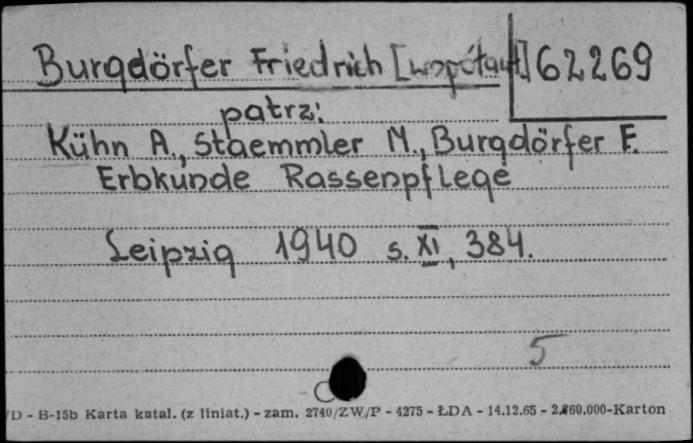 Burgdörfer Friedrich [współaut] 62269
patrz:
Kühn A., Staemmler M., Burgdörfer F.
Erbkunde Rassenpflege
Leipzig 1940 s. XI, 384.
5
/D - B-15b Karta katal. (z liniat.) - zam. 2740/ZW/P - 4275 - ŁDA - 14.12.65 - 2.860.000-Karton